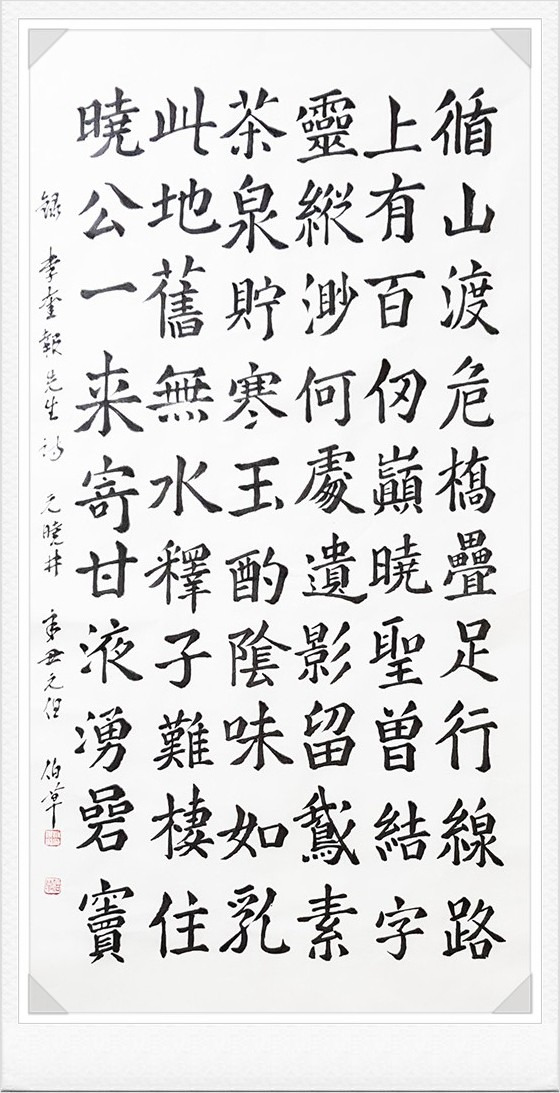 循山渡危橋疊足行線路
上有百仞巓曉聖曾結字
靈縱渺何處遺影留鵞素
茶泉貯寒玉酌陰味如乳
此地舊無水釋子難棲住
曉公一来寄甘液湧碞竇
録 李奎報先生詩 元曉井 辛丑元旦 伯草